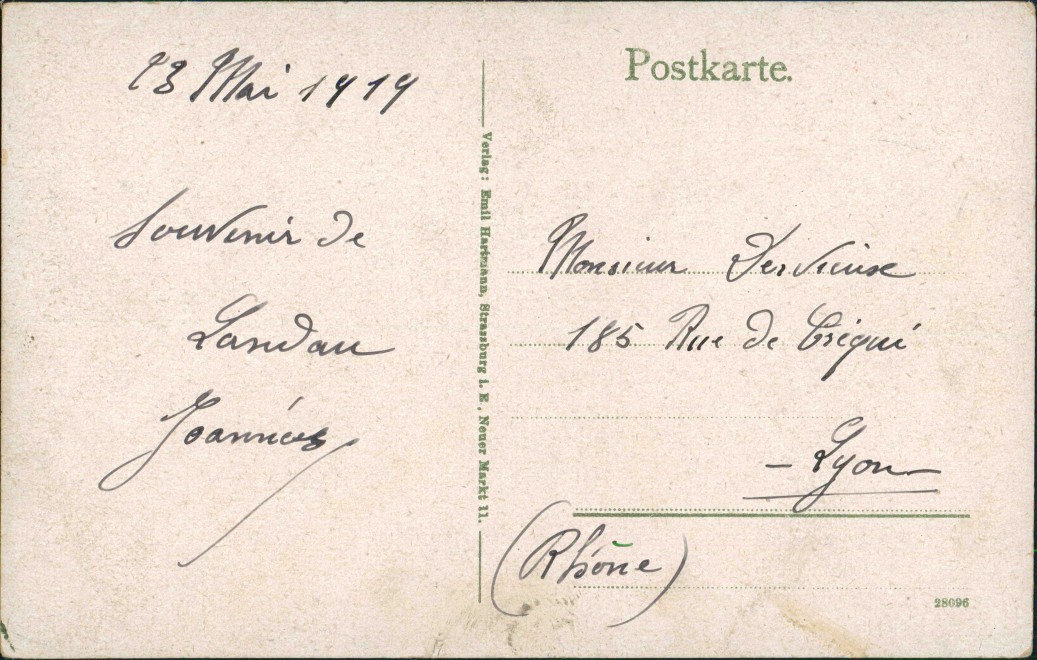 23 Mai 1919
Souvenir de
Landau
Joannès
Verlag: Emil Hartmann, Strassburg i. E., Neuer Markt 11.
Postkarte.
Monsieur Dervieux
185 Rue de Créqui
– Lyon
(Rhône)
28096